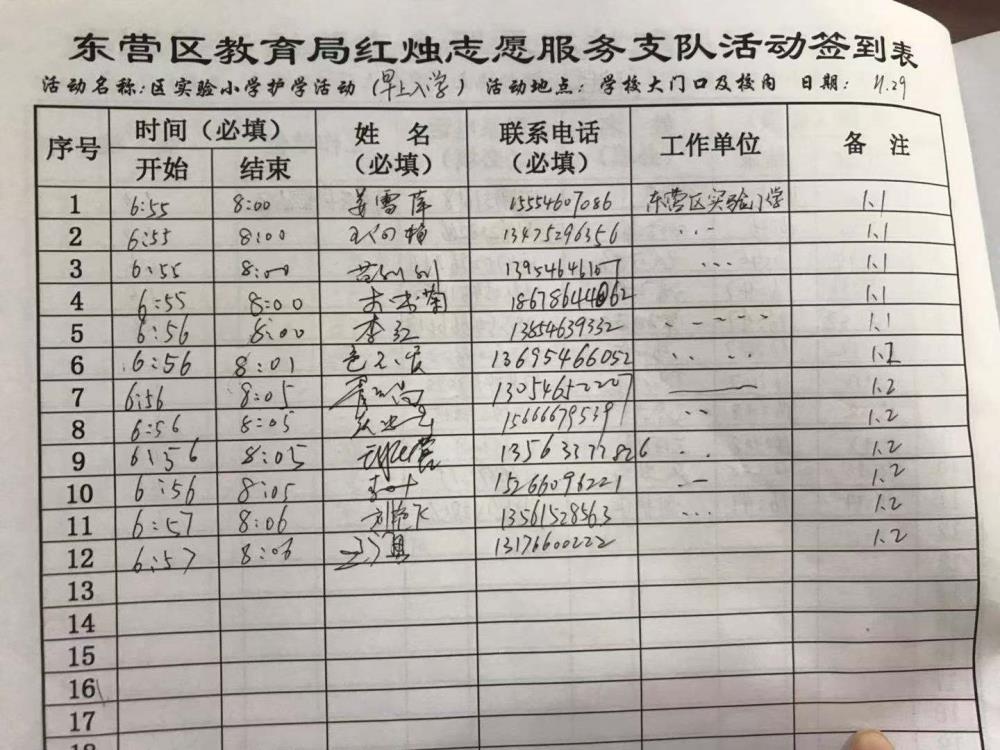 东营区教育局红烛志愿服务支队活动签到表
活动名称:区实验小学护学活动(早上入学) 活动地点:学校大门口及校内 日期: 11.29
序号 时间(必填) 姓名 联系电话 工作单位 备注
开始 结束 (必填) (必填)
1 6:55 8:00 姜雪萍 15554607086 东营区实验小学 1.1
2 6:55 8:00 13475296356 ... 1.1
3 6:55 8:00 ... 1.1
4 6:55 8:00 1.1
5 6:56 8:00 李红 13854639332 1.1
6 6:56 8:01 13695466052 1.2
7 6:56 8:05 13054652227 1.2
8 6:56 8:05 15666795391 1.2
9 6:56 8:05 13563377826 1.2
10 6:56 8:05 15266096221 1.2
11 6:57 8:06 刘艳飞 13561528563 ... 1.2
12 6:57 8:06 13176600222 1.2
13
14
15
16
17
18